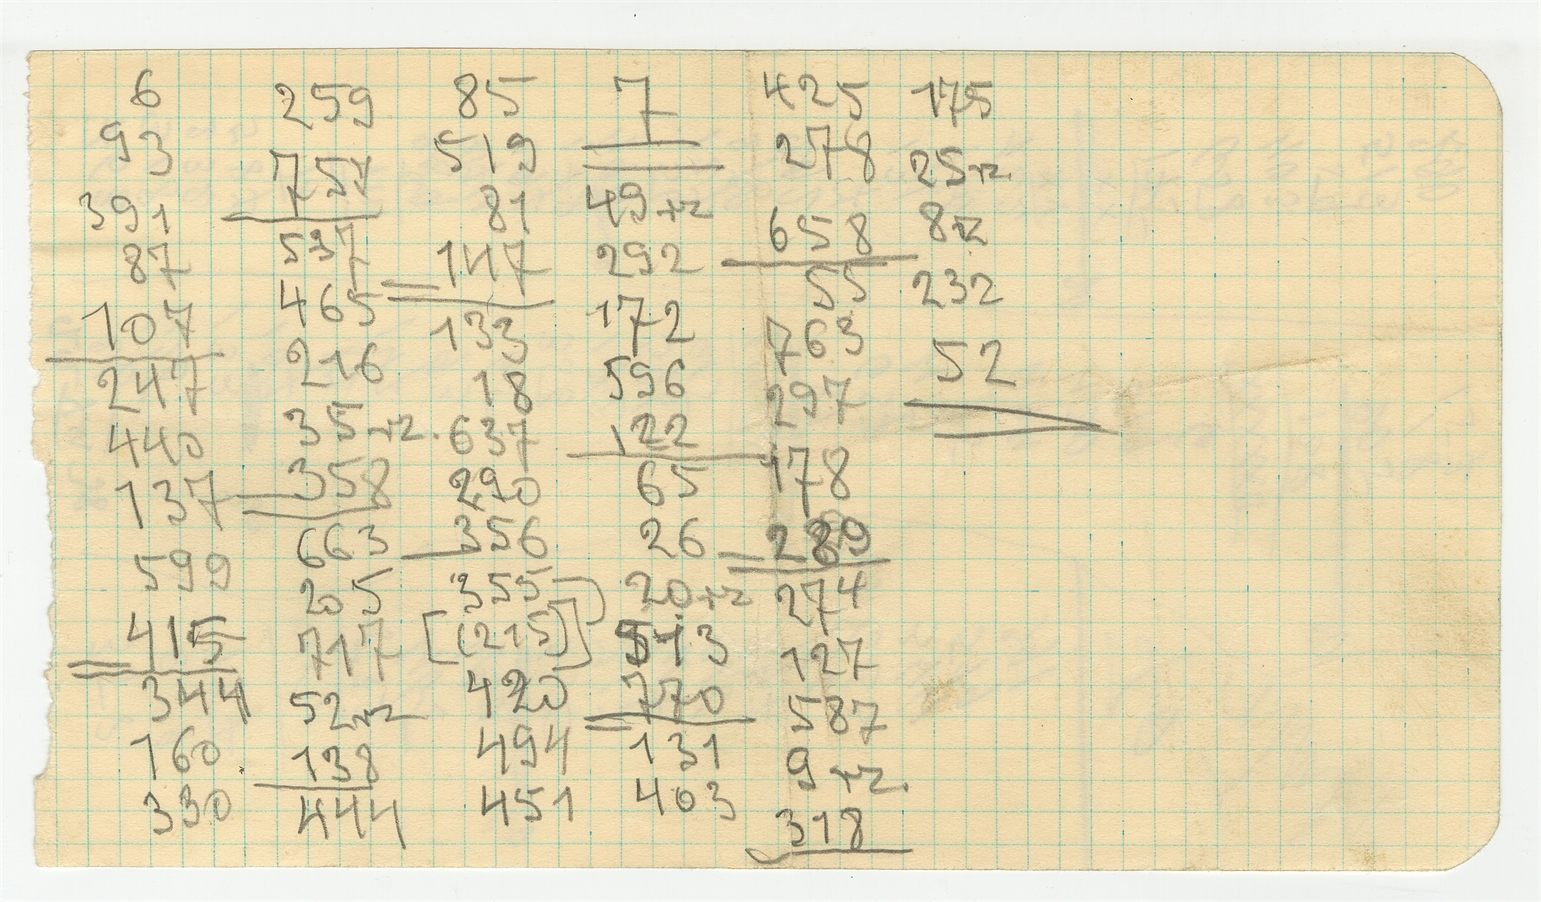 6
93
391
87
107
247
440
137
599
415
344
160
330
259
751
537
465
216
35+z.
358
663
205
717
52+z
138
444
85
519
81
147
133
18
637
290
356
355
[(215)]
420
494
451
7
49+z
292
172
596
122
65
26
20+z
513
770
131
403
425
278
658
55
763
297
178
289
274
127
587
9+z.
318
175
25+z.
8+z
232
52